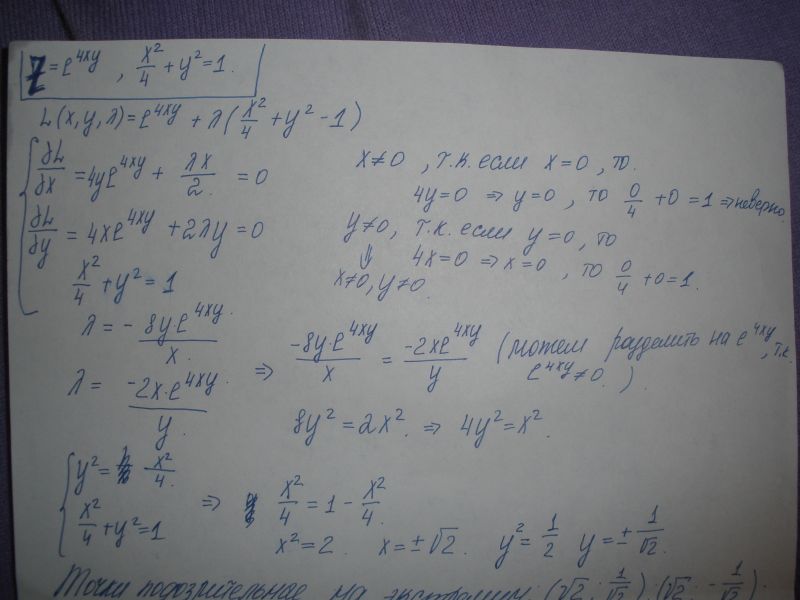 z = e^{4xy}, x²/4 + y² = 1.
L(x, y, λ) = e^{4xy} + λ(x²/4 + y² - 1)
∂L/∂x = 4ye^{4xy} + λx/2 = 0
∂L/∂y = 4xe^{4xy} + 2λy = 0
x²/4 + y² = 1
x≠0, т.к. если x=0, то.
4y=0 ⇒ y=0, то 0/4 + 0 = 1 ⇒ неверно.
y≠0, т.к. если y=0, то
⇓ 4x=0 ⇒ x=0, то 0/4 + 0 = 1.
x≠0, y≠0.
λ = - 8y·e^{4xy}/x.
λ = -2x·e^{4xy}/y.
⇒ -8y·e^{4xy}/x = -2xe^{4xy}/y (можем разделить на e^{4xy}, т.к.
e^{4xy}≠0.)
8y² = 2x². ⇒ 4y² = x².
y² = x²/4.
x²/4 + y² = 1
⇒ x²/4 = 1 - x²/4.
x² = 2. x = ±√2. y² = 1/2 y = ± 1/√2.
Точки подозрительные на экстремум: (√2; 1/√2); (√2; -1/√2);